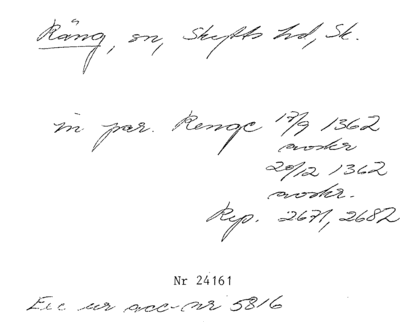 Räng, sn, Skytts hd, Sk.
in par. Renge 17/9 1362
avskr
20/12 1362
avskr.
Rep. 2671, 2682
Nr 24161
Exc ur acc-nr 5816